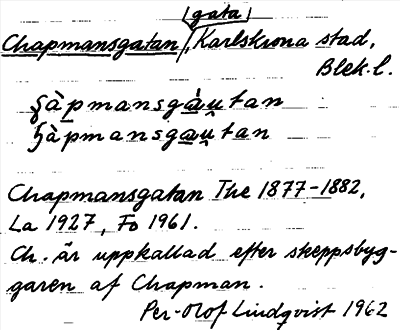 /gata/
Chapmansgatan/, Karlskrona stad,
Blek. l.
ʂàpmansgá̱u̯tan
ɧàpmansga̱u̯tan
Chapmansgatan The 1877-1882,
La 1927, Fo 1961.
Ch. är uppkallad efter skeppsbyg-
garen af Chapman.
Per-Olof Lindqvist 1962